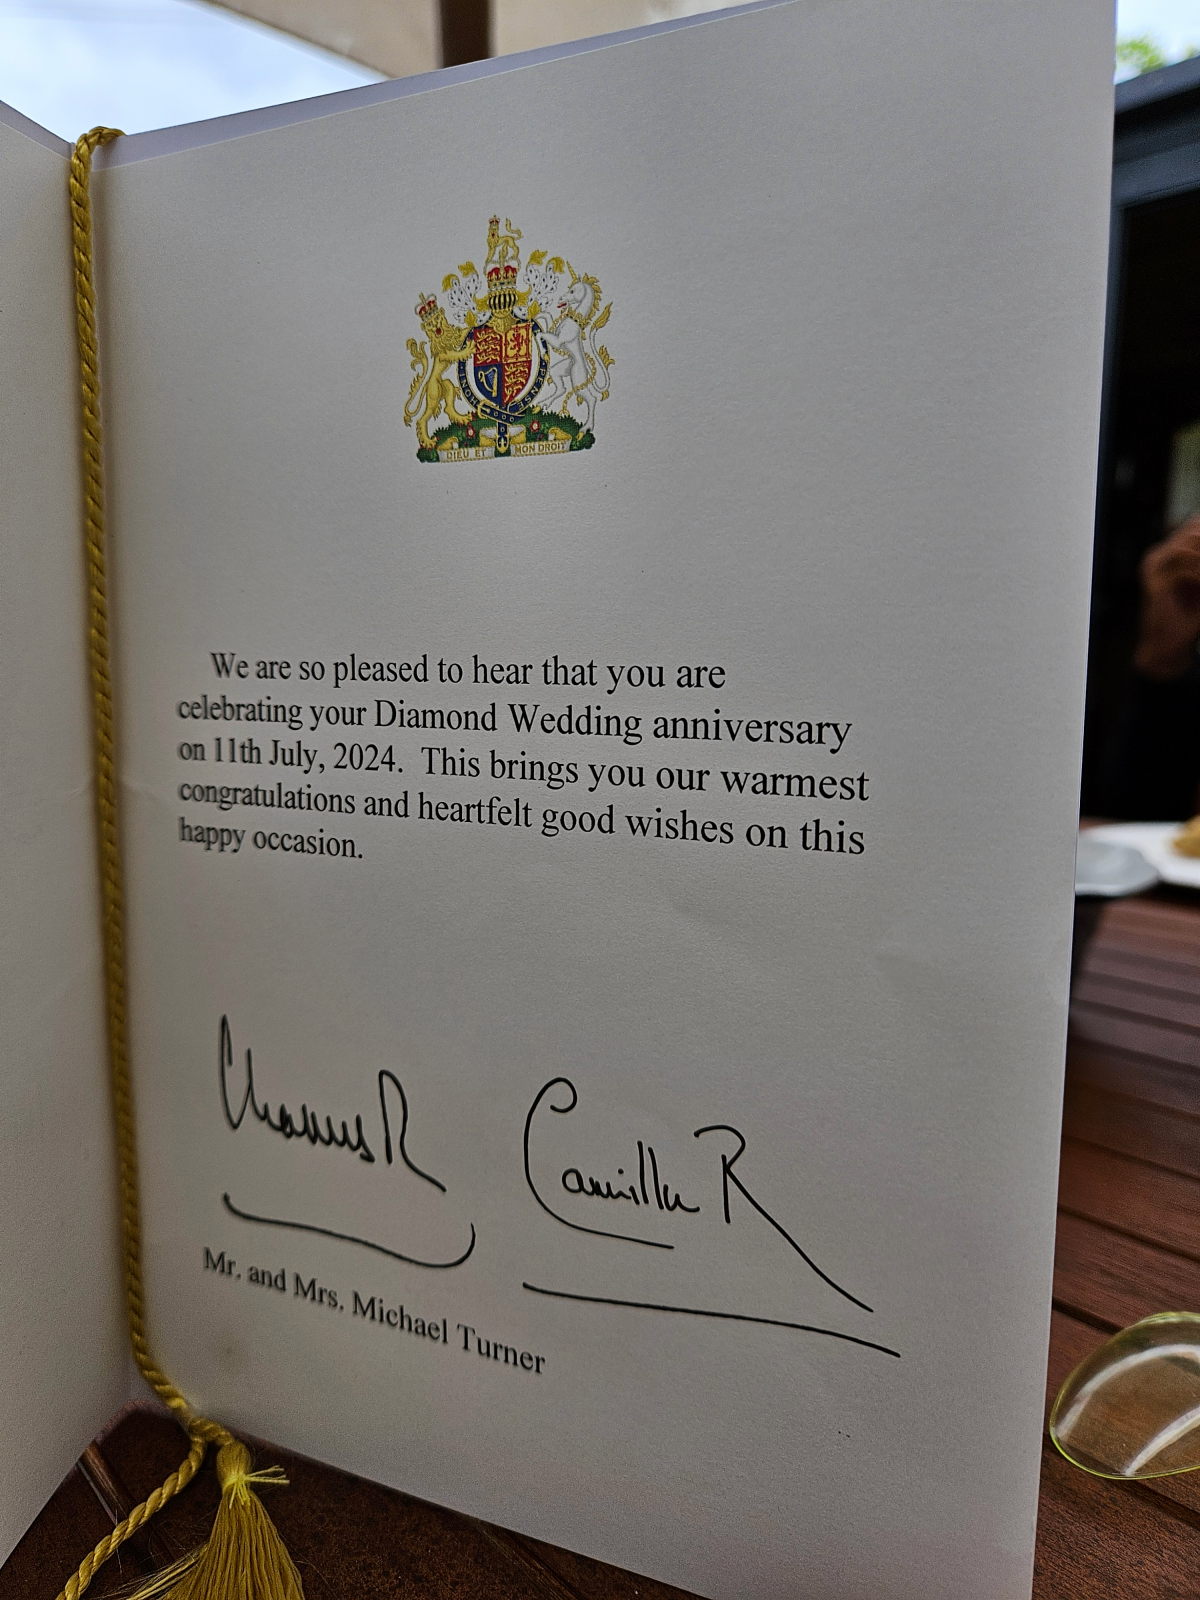 HONI PENSE
DIEU ET MON DROIT
We are so pleased to hear that you are
celebrating your Diamond Wedding anniversary
on 11th July, 2024. This brings you our warmest
congratulations and heartfelt good wishes on this
happy occasion.
Charles R Camilla R
Mr. and Mrs. Michael Turner